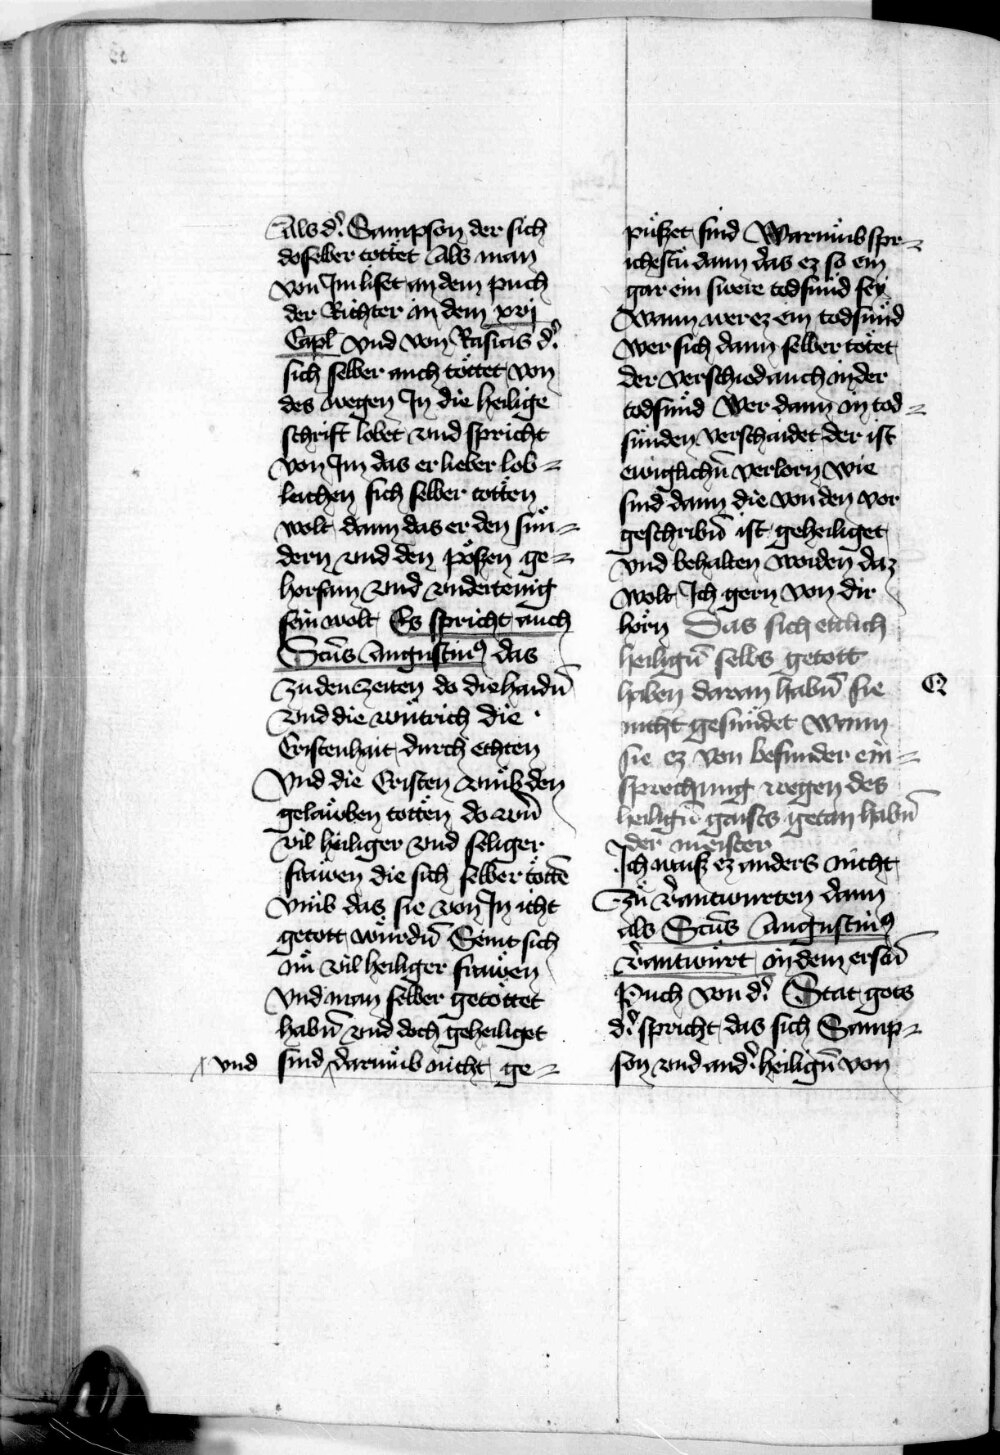 Als d' Sampson der sich
doselber tottet Als man
von Im liset in dem puch
der Richter in dem xvj
Capl vnd von Rasias d'
sich selber auch töttet von
des wegen In die heilige
schrift lobet vnd spricht
von Im das er lieber lob-
leichen sich selber totten
wolt dann das er den sün-
dern vnd den pößen ge-
horsam vnd vndertenig
sein wolt Es spricht auch
Sctūs Augustinꝰ das
zu den zeiten do die haidn̄
vnd die wütrich die
Cristenhait durch echten
Vnd die Cristen vmb den
gelauben totten do wrn̄
vil heiliger vnd seliger
frawen die sich selber tottē
Vmb das sie von In icht
getott würdn̄ Seint sich
nü vil heiliger frawen
Vnd man selber getöttet
habn̄ vnd doch geheiliget
vnd sind darumb nicht ge-
püßet sind Warumb spr-
ichestu dann das ez so ein
gar ein swere todsund sey
Wann wer ez ein todsünd
wer sich dann selber tötet
der verschied auch in der
todsünd Wer dann in tod-
sünden verschaidet der ist
ewiglichn̄ verlorn wie
sind dann die von den vor
geschribn̄ ist geheiliget
vnd behalten worden daz
wolt Ich gern von dir
hörn Das sich ettlich
heilign̄ selbs getott
haben daran habn̄ sie
nicht gesündet wann
sie ez von besunder ein-
sprechung wegen des
heilign̄ gaists getan habn̄
der meister
Ich waiß ez anders nicht
Zu v'antwurten dann
als Sctūs Augustinꝰ
v'antwürt in dem erstn̄
Puch von d' Stat gots
d' spricht das sich Samp-
son vnd and' heilign̄ von